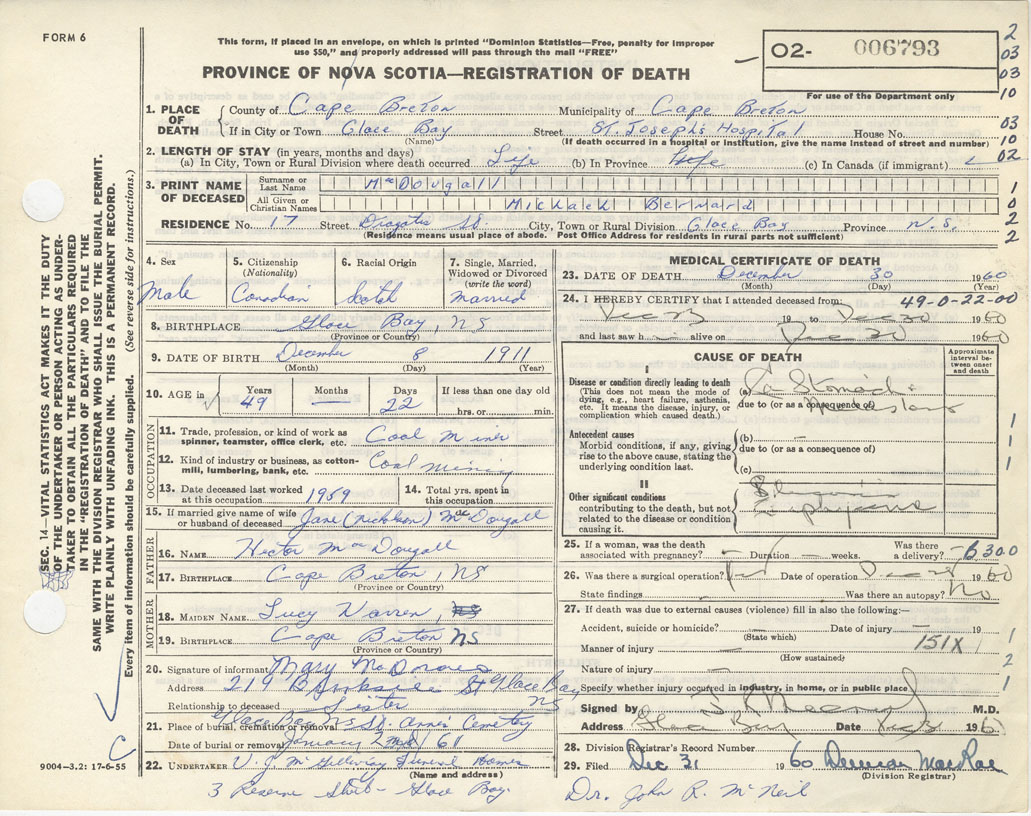 FORM 6
This form, if placed in an envelope, on which is printed "Dominion Statistics—Free, penalty for improper
use $50," and properly addressed will pass through the mail "FREE"
PROVINCE OF NOVA SCOTIA—REGISTRATION OF DEATH
O2- 006793
For use of the Department only
2
03
03
10
03
10
02
1
0
2
2
1. PLACE OF DEATH
County of Cape Breton Municipality of Cape Breton
If in City or Town Glace Bay Street St. Joseph's Hospital House No.
(Name) (If death occurred in a hospital or institution, give the name instead of street and number)
2. LENGTH OF STAY (in years, months and days)
(a) In City, Town or Rural Division where death occurred Life (b) In Province Life (c) In Canada (if immigrant)
3. PRINT NAME OF DECEASED
Surname or Last Name McDougall
All Given or Christian Names Michael Bernard
RESIDENCE No. 17 Street St City, Town or Rural Division Glace Bay Province N.S.
(Residence means usual place of abode. Post Office Address for residents in rural parts not sufficient)
4. Sex Male
5. Citizenship (Nationality) Canadian
6. Racial Origin Scotch
7. Single, Married, Widowed or Divorced (write the word) Married
8. BIRTHPLACE Glace Bay, NS
(Province or Country)
9. DATE OF BIRTH December 8 1911
(Month) (Day) (Year)
10. AGE in Years 49 Months — Days 22 If less than one day old
hrs. or min.
OCCUPATION
11. Trade, profession, or kind of work as spinner, teamster, office clerk, etc. Coal Miner
12. Kind of industry or business, as cotton-mill, lumbering, bank, etc. Coal mining
13. Date deceased last worked at this occupation 1959
14. Total yrs. spent in this occupation
15. If married give name of wife or husband of deceased Jane McDougall
FATHER
16. NAME Hector MacDougall
17. BIRTHPLACE Cape Breton, NS
(Province or Country)
MOTHER
18. MAIDEN NAME Lucy Warren
19. BIRTHPLACE Cape Breton NS
(Province or Country)
20. Signature of informant Mary
Address 219 Brookside St Glace Bay NS
Relationship to deceased Sister
21. Place of burial, cremation or removal Glace Bay NS St. Anne's Cemetery
Date of burial or removal January 2nd/61
22. UNDERTAKER V. J. McGillivray Funeral Homes
(Name and address)
3 Reserve Street - Glace Bay.
MEDICAL CERTIFICATE OF DEATH
23. DATE OF DEATH December 30 1960
(Month) (Day)
49-0-22-00
24. I HEREBY CERTIFY that I attended deceased from:
Dec 19 to Dec 30 1960
and last saw h alive on Dec 30 1960
CAUSE OF DEATH
Approximate interval between onset and death
I
Disease or condition directly leading to death
(This does not mean the mode of dying, e.g., heart failure, asthenia, etc. It means the disease, injury, or complication which caused death.)
(a) Ca Stomach
due to (or as a consequence of)
Antecedent causes
Morbid conditions, if any, giving rise to the above cause, stating the underlying condition last.
(b) —
due to (or as a consequence of)
(c)
II
Other significant conditions
contributing to the death, but not related to the disease or condition causing it.
1
1
1
25. If a woman, was the death associated with pregnancy? Duration — weeks. Was there a delivery?
6300
26. Was there a surgical operation? Date of operation Dec 1960
State findings Was there an autopsy? No
27. If death was due to external causes (violence) fill in also the following:—
Accident, suicide or homicide? — Date of injury — 19
(State which)
151X
Manner of injury —
(How sustained)
Nature of injury —
Specify whether injury occurred in industry, in home, or in public place
1
1
2
1
Signed by M.D.
Address Glace Bay Date 196
28. Division Registrar's Record Number
29. Filed Dec 31 1960 MacRae
(Division Registrar)
Dr. John R. McNeil
SEC. 14—VITAL STATISTICS ACT MAKES IT THE DUTY
OF THE UNDERTAKER OR PERSON ACTING AS UNDER-
TAKER TO OBTAIN ALL THE PARTICULARS REQUIRED
IN THE "REGISTRATION OF DEATH" AND TO FILE THE
SAME WITH THE DIVISION REGISTRAR WHO SHALL ISSUE THE BURIAL PERMIT.
WRITE PLAINLY WITH UNFADING INK. THIS IS A PERMANENT RECORD.
Every item of information should be carefully supplied. (See reverse side for instructions.)
C
9004-3.2: 17-6-55